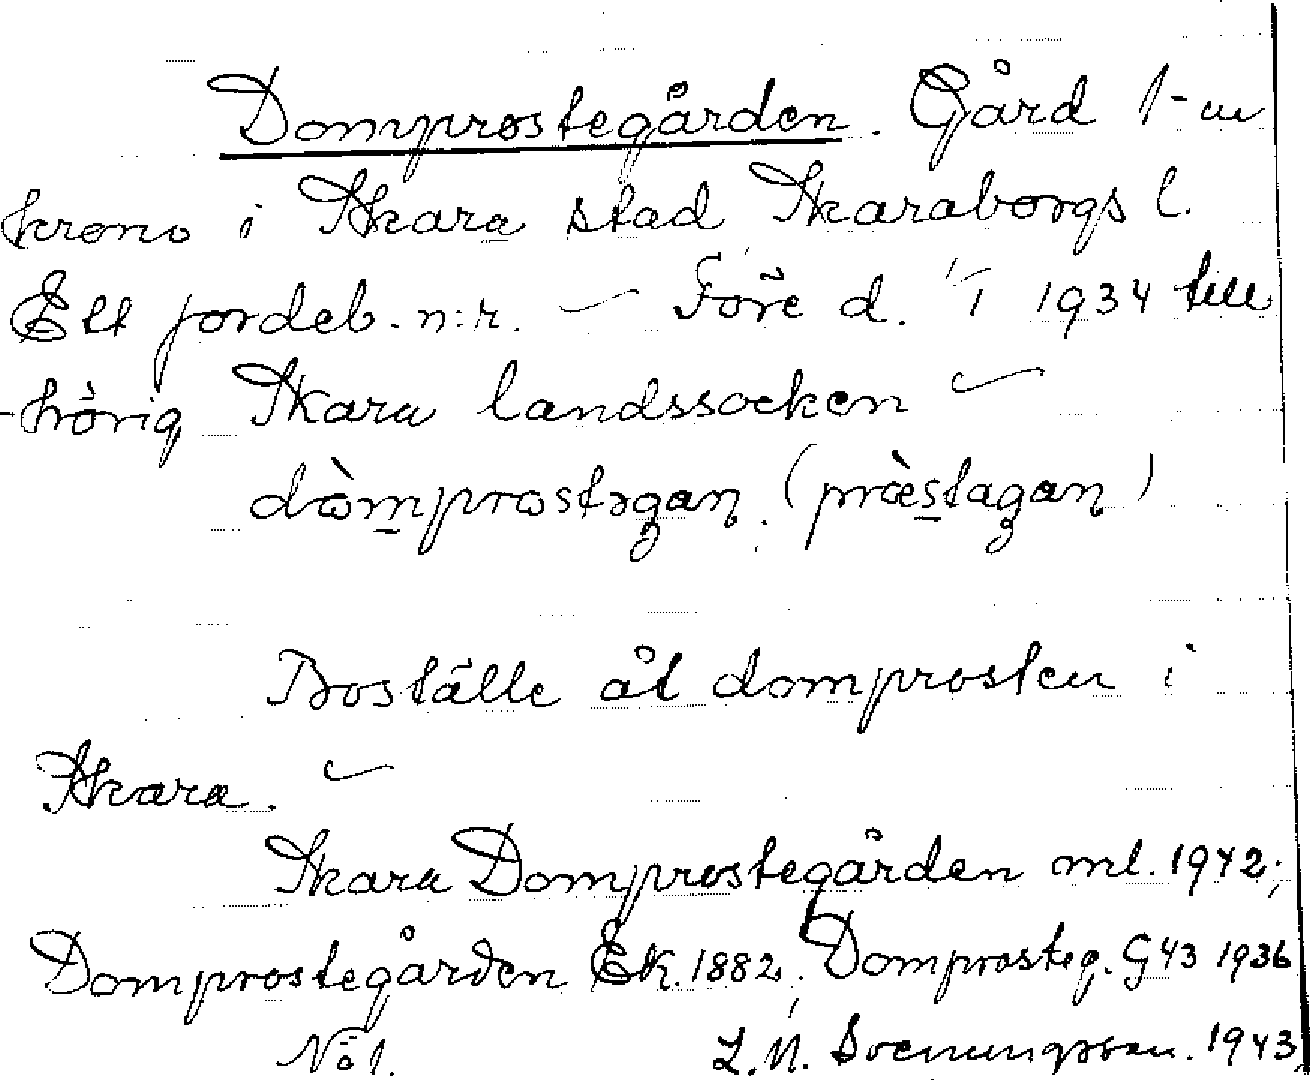 Domprostegården. Gård 1-m
krono i Skara stad Skaraborgs l.
Ett jordeb. n:r. – Före d. 1/1 1934 till
-hörig Skara landssocken –
dòmprostəgaɳ. (præ̀stagaɳ)
Boställe åt domprosten i
Skara. –
Skara Domprostegården ml. 1942;
Domprostegården Ek. 1882; Domprosteg. G43 1936
Nö1. L.N. Svenungsson. 1943